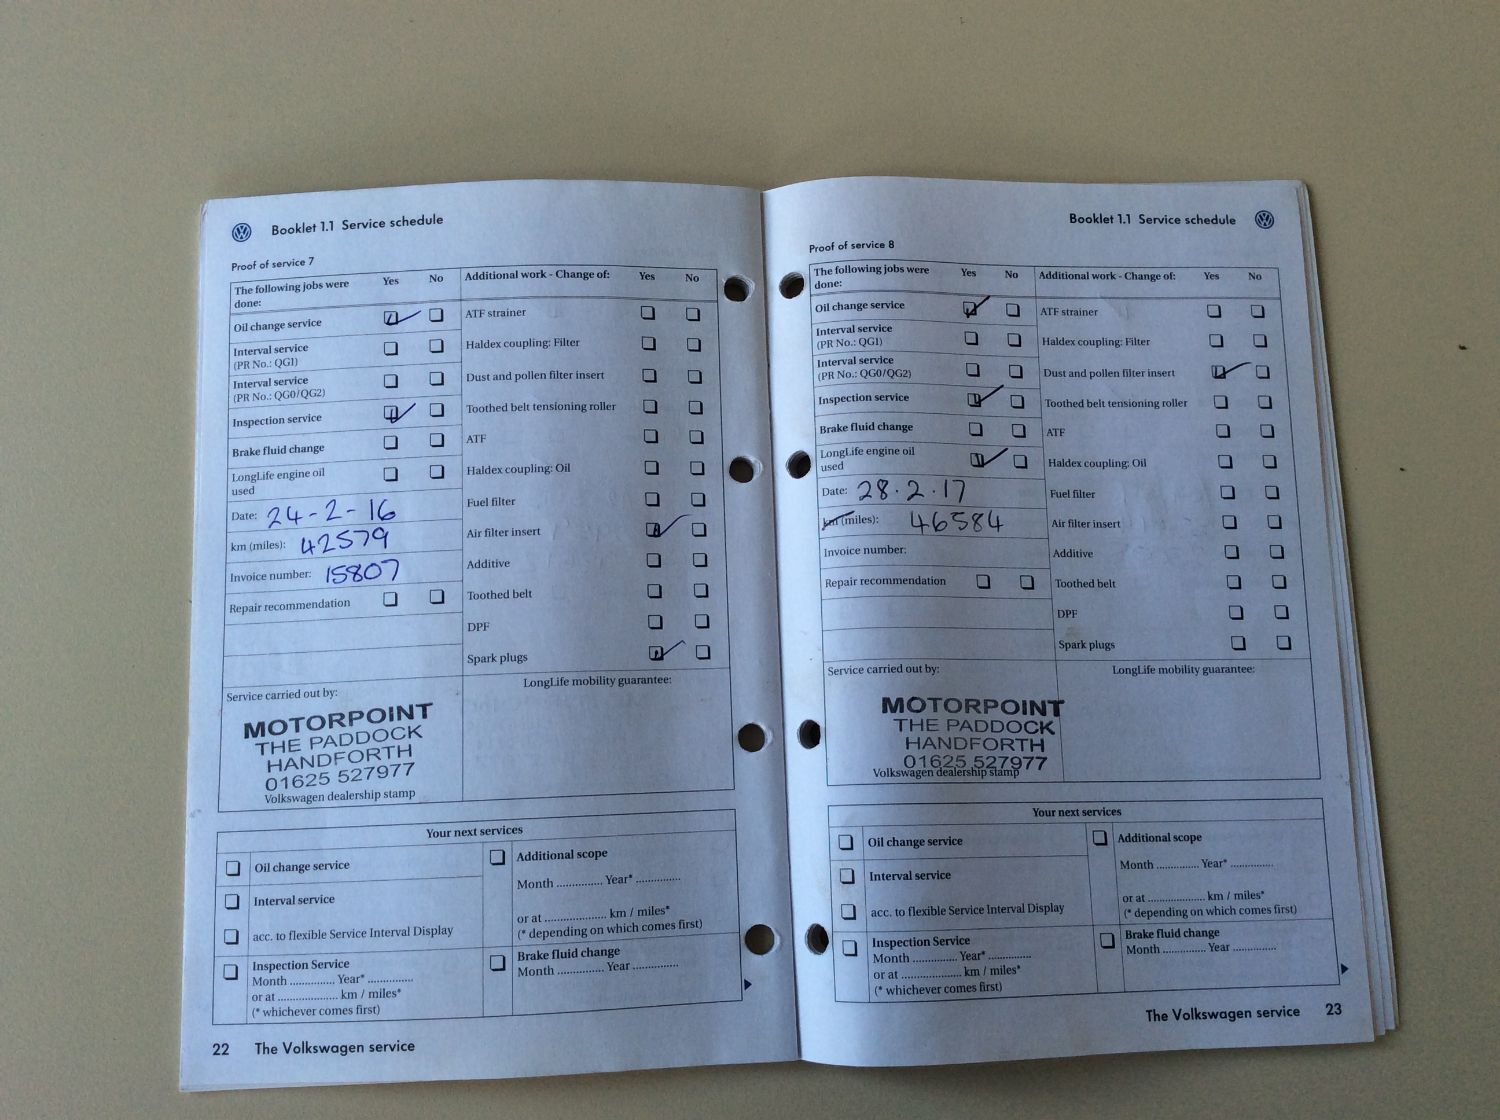 Booklet 1.1 Service schedule
Proof of service 7
The following jobs were done: Yes No
Oil change service
Interval service
(PR No.: QG1)
Interval service
(PR No.: QG0/QG2)
Inspection service
Brake fluid change
LongLife engine oil
used
Date: 24-2-16
km (miles): 42579
Invoice number: 15807
Repair recommendation
Additional work - Change of: Yes No
ATF strainer
Haldex coupling: Filter
Dust and pollen filter insert
Toothed belt tensioning roller
ATF
Haldex coupling: Oil
Fuel filter
Air filter insert
Additive
Toothed belt
DPF
Spark plugs
Service carried out by:
MOTORPOINT
THE PADDOCK
HANDFORTH
01625 527977
Volkswagen dealership stamp
LongLife mobility guarantee:
Your next services
Oil change service
Interval service
acc. to flexible Service Interval Display
Inspection Service
Month .............. Year* ..............
or at .................... km / miles*
(* whichever comes first)
Additional scope
Month .............. Year* ..............
or at .................... km / miles*
(* depending on which comes first)
Brake fluid change
Month .............. Year ..............
22 The Volkswagen service
Booklet 1.1 Service schedule
Proof of service 8
The following jobs were
done: Yes No
Oil change service
Interval service
(PR No.: QG1)
Interval service
(PR No.: QG0/QG2)
Inspection service
Brake fluid change
LongLife engine oil
used
Date: 28.2.17
km (miles): 46584
Invoice number:
Repair recommendation
Additional work - Change of: Yes No
ATF strainer
Haldex coupling: Filter
Dust and pollen filter insert
Toothed belt tensioning roller
ATF
Haldex coupling: Oil
Fuel filter
Air filter insert
Additive
Toothed belt
DPF
Spark plugs
Service carried out by:
MOTORPOINT
THE PADDOCK
HANDFORTH
01625 527977
Volkswagen dealership stamp
LongLife mobility guarantee:
Your next services
Oil change service
Interval service
acc. to flexible Service Interval Display
Inspection Service
Month .............. Year* ..............
or at .................... km / miles*
(* whichever comes first)
Additional scope
Month .............. Year* ..............
or at .................... km / miles*
(* depending on which comes first)
Brake fluid change
Month .............. Year ..............
The Volkswagen service 23